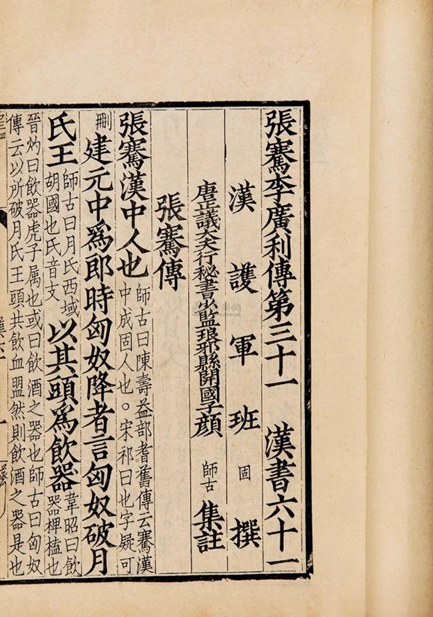 張騫李廣利傳第三十一 漢書六十一
漢護軍班固撰
唐正議大夫行秘書少監琅邪縣開國子顏師古集註
張騫傳
張騫漢中人也師古曰陳壽益部耆舊傳云騫漢中成固人也。宋祁曰也字疑可
刪建元中爲郎時匈奴降者言匈奴破月
氏王師古曰月氏西域胡國也氏音支以其頭爲飲器韋昭曰飲器椑榼也
晉灼曰飲器虎子属也或曰飲酒之器也師古曰匈奴
傳云以所破月氏王頭共飲血盟然則飲酒之器是也